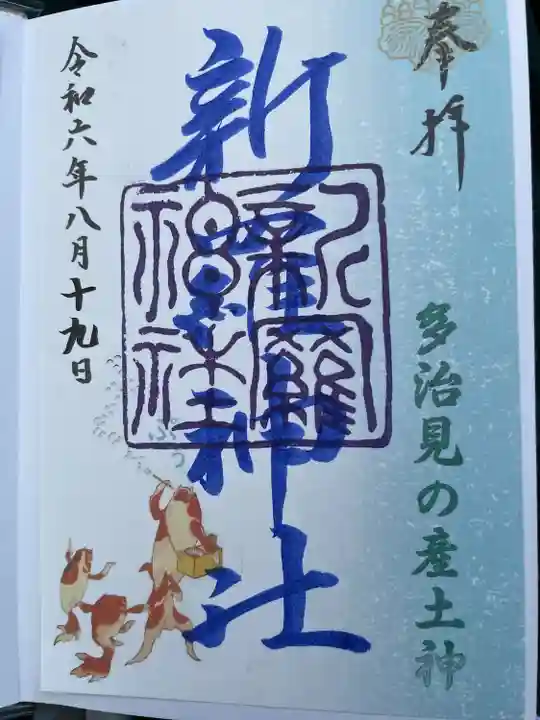 奉拝
多治見の産土神
新羅神社
新羅神社
令和六年八月十九日